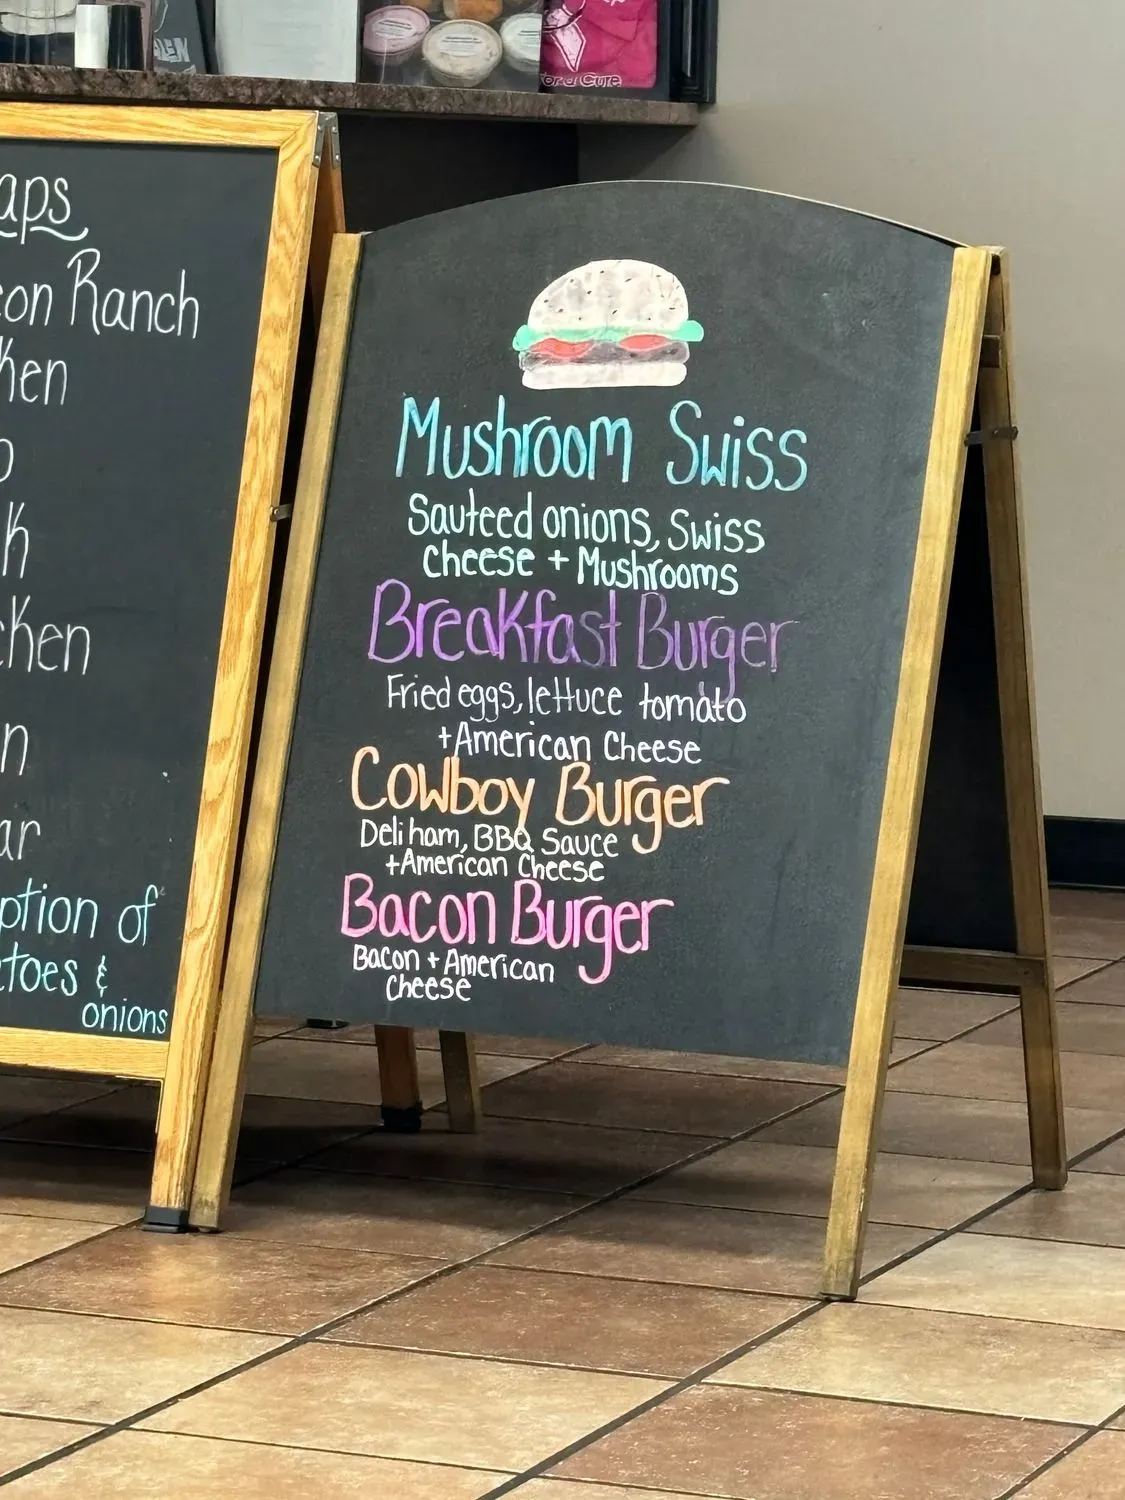 Ranch
of
&
onions
Mushroom Swiss
Sauteed onions, Swiss
Cheese + Mushrooms
Breakfast Burger
Fried eggs, lettuce tomato
+American Cheese
Cowboy Burger
Deli ham, BBQ Sauce
+American Cheese
Bacon Burger
Bacon + American
Cheese